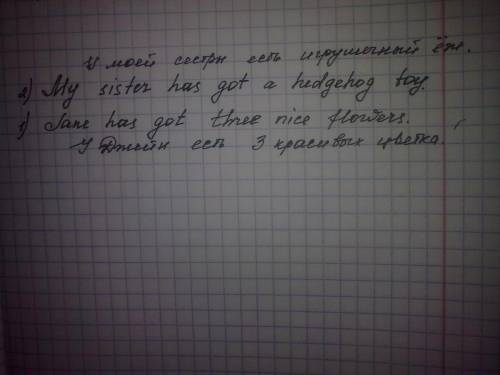 У моей сестры есть игрушечный ёж.
2) My sister has got a hedgehog toy.
1) Jane has got three nice flowers.
У Джейн есть 3 красивых цветка.